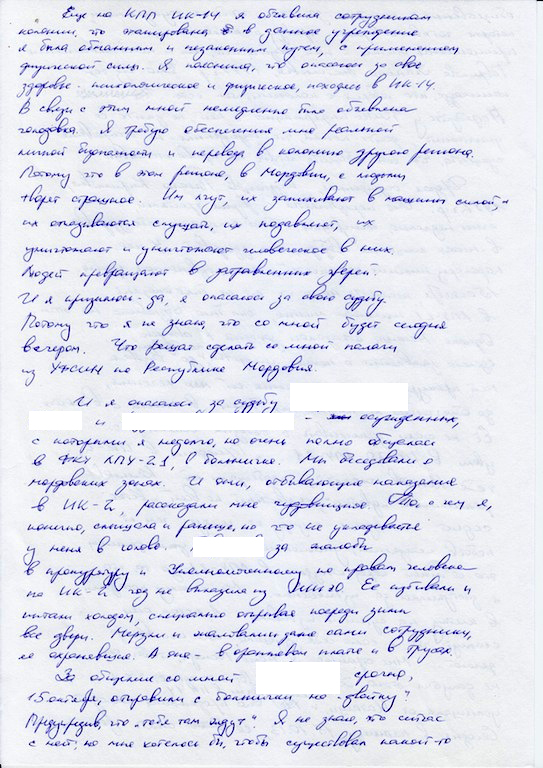 Еще на КПП ИК-14 я объявила сотрудникам
колонии, что этапирована в данное учреждение
я была обманным и незаконным путем, с применением
физической силы. Я пояснила, что опасаюсь за свое
здоровье - психологическое и физическое, находясь в ИК-14.
В связи с этим мной немедленно была объявлена
голодовка. Я требую обеспечения мне реальной
личной безопасности и перевода в колонию другого региона.
Потому что в этом регионе, в Мордовии, с людьми
творят страшное. Им лгут, их запихивают в машины силой,
их отказываются слушать, их подавляют, их
уничтожают и уничтожают человеческое в них.
Людей превращают в затравленных зверей.
И я признаюсь - да, я опасаюсь за свою судьбу.
Потому что я не знаю, что со мной будет сегодня
вечером. Что решат сделать со мной палачи
из УФСИН по Республике Мордовия.
И я опасаюсь за судьбу
и - осужденных,
с которыми я недолго, но очень полно общалась
в ФКУ ЛПУ-21, в больничке. Мы беседовали о
мордовских зонах. И они, отбывающие наказание
в ИК-2, рассказали мне чудовищное. То, о чем я,
конечно, слышала и раньше, но что не укладывается
у меня в голове. за жалобы
в прокуратуру и Уполномоченному по правам человека
по ИК-2 год не вылазила из ШИЗО. Ее избивали и
пытали холодом, специально открывая посреди зимы
все двери. Мерзли и жаловались даже сами сотрудники,
ее охранявшие. А она - в оранжевом платье и в трусах.
За общение со мной срочно,
15 октября, отправили с больнички на „двойку"
Предупредив, что „тебя там ждут". Я не знаю, что сейчас
с ней, но мне хотелось бы, чтобы существовал какой-то